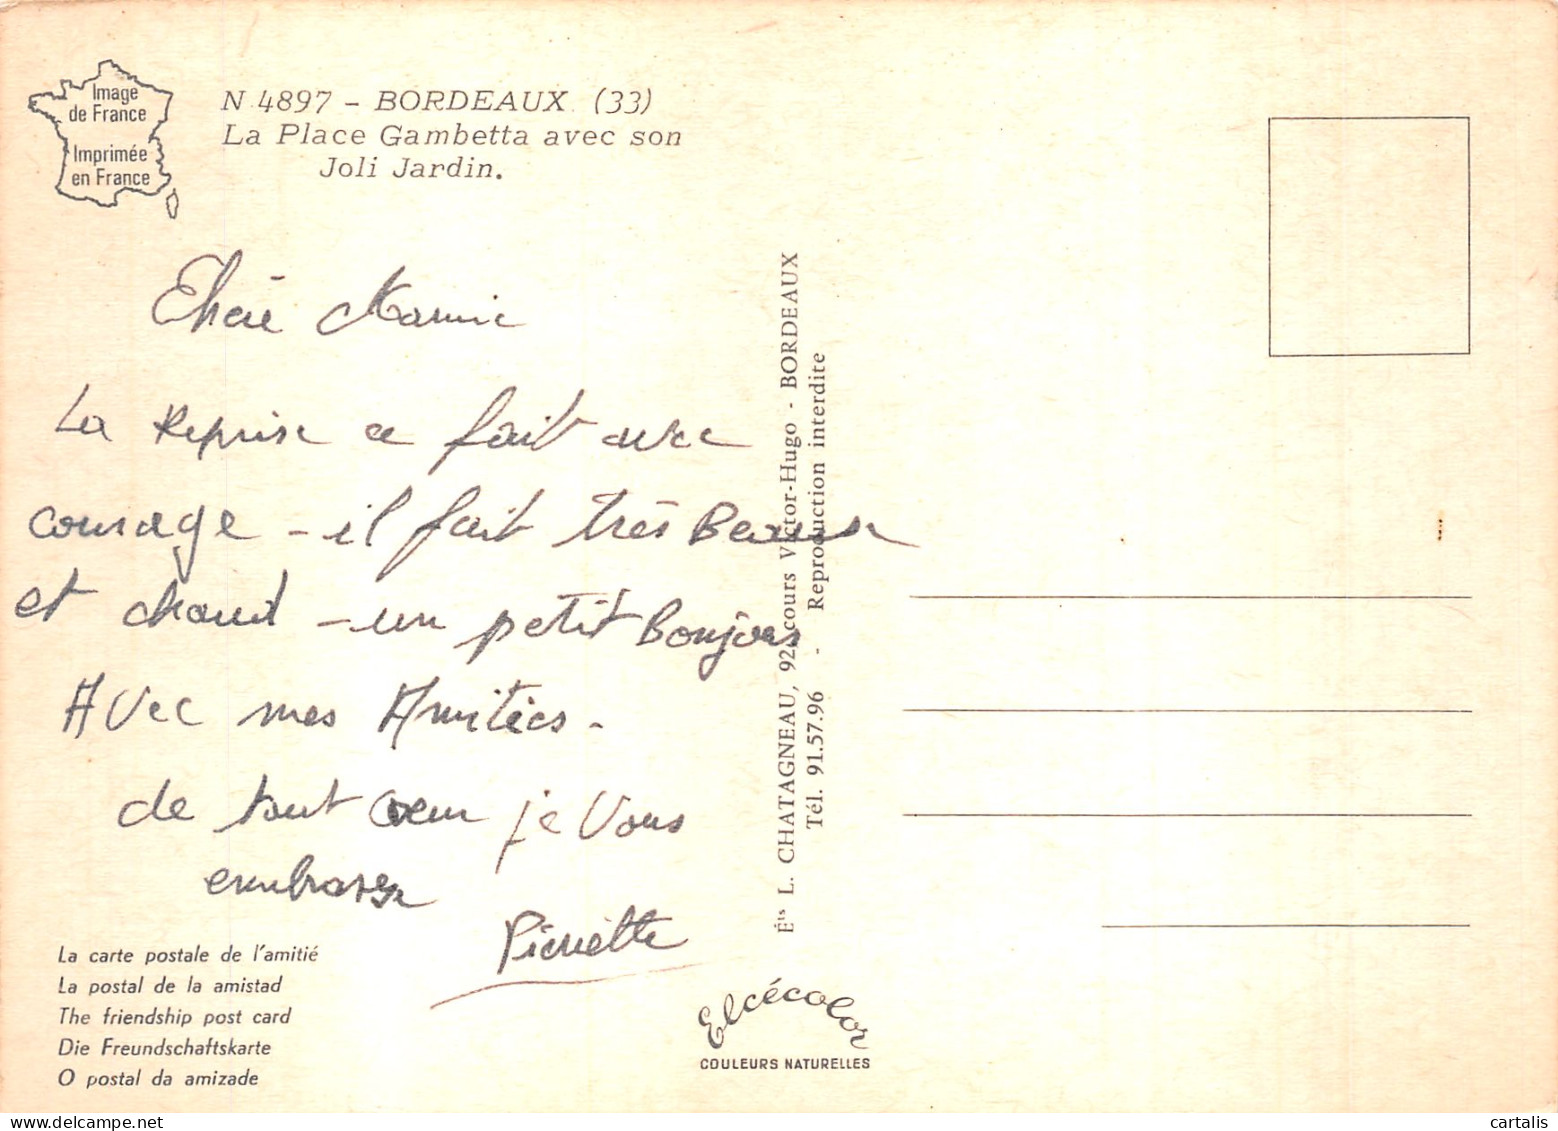 Image
de France
Imprimée
en France
N 4897 - BORDEAUX (33)
La Place Gambetta avec son
Joli Jardin.
Chère Mamie
La Reprise ce fait avec
courage - il fait très Beau
et chaud - un petit Bonjour
Avec mes Amitiés -
de tout coeur je Vous
embrasse
Pierrette
La carte postale de l'amitié
La postal de la amistad
The friendship post card
Die Freundschaftskarte
O postal da amizade
Éts L. CHATAGNEAU, 92, cours Victor-Hugo - BORDEAUX
Tél. 91.57.96 - Reproduction interdite
Elcécolor
COULEURS NATURELLES
cartalis